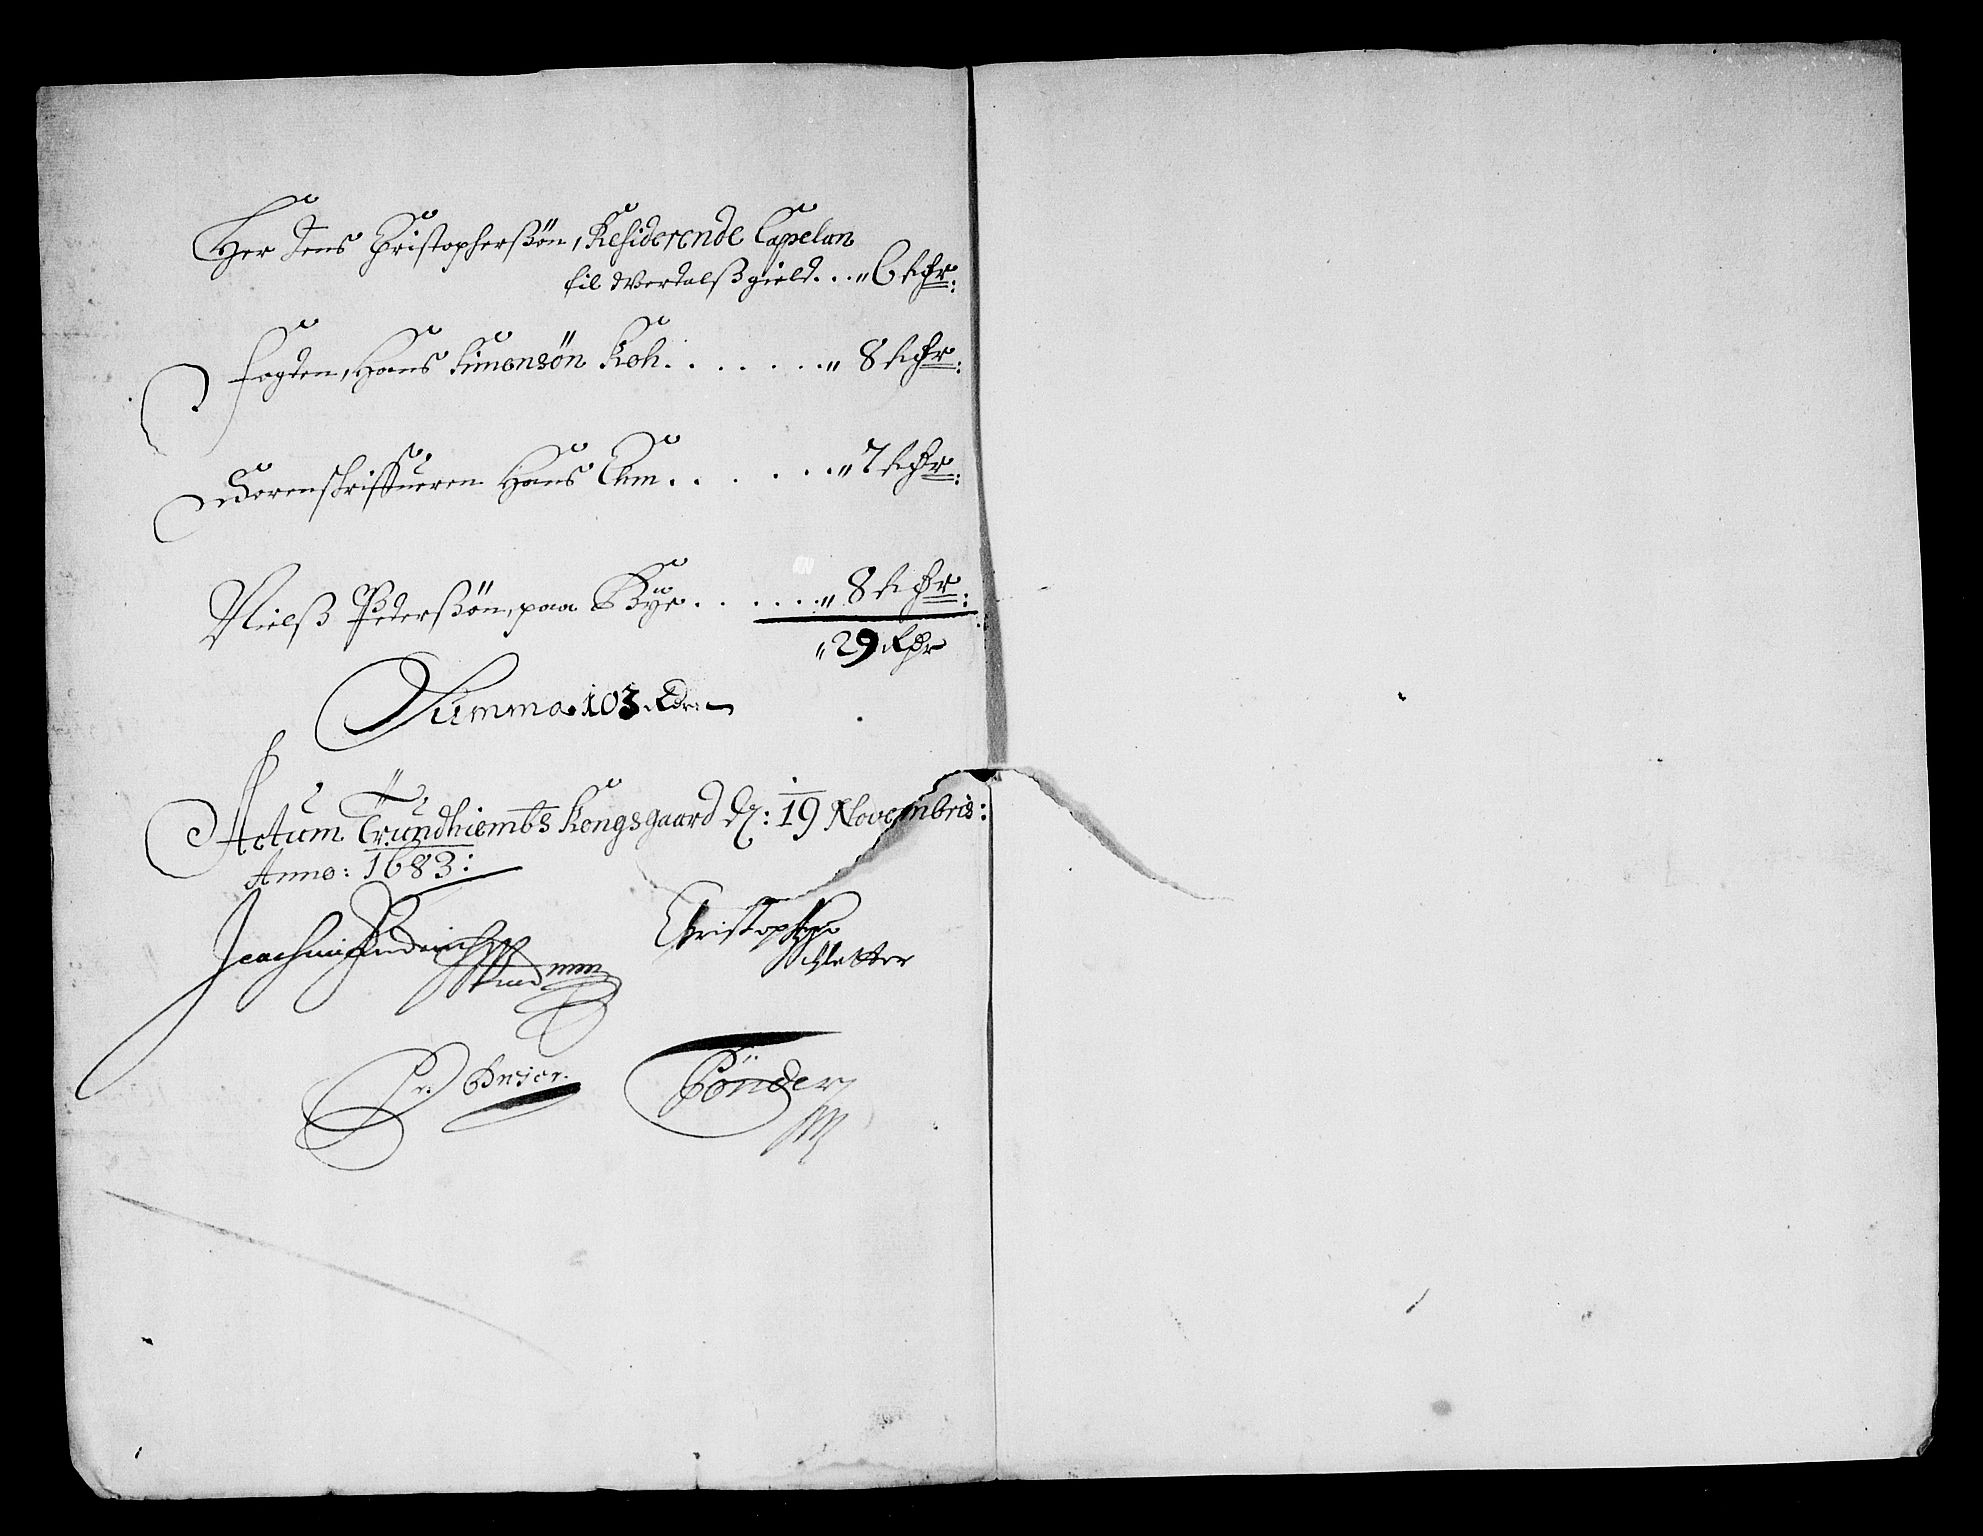 Her Jens Christopherßøn, Residerende Capelan
til Werdalß gield... „ 6 Rdr:
Fogden, Hans Simonsøn Koh....... „ 8 Rdr:
Sorenskriffueren Hans Ehm...... „ 7 Rdr:
Nielß Pederßøn, paa Bÿe...... „ 8 Rdr:
„ 29 Rdr
Summa 103 Rdr:
Actum Trundhiembs Kongsgaard d: 19 Novembris:
Anno: 1683:
Joachim Fredrich
Christopher
Schletter
Tönder